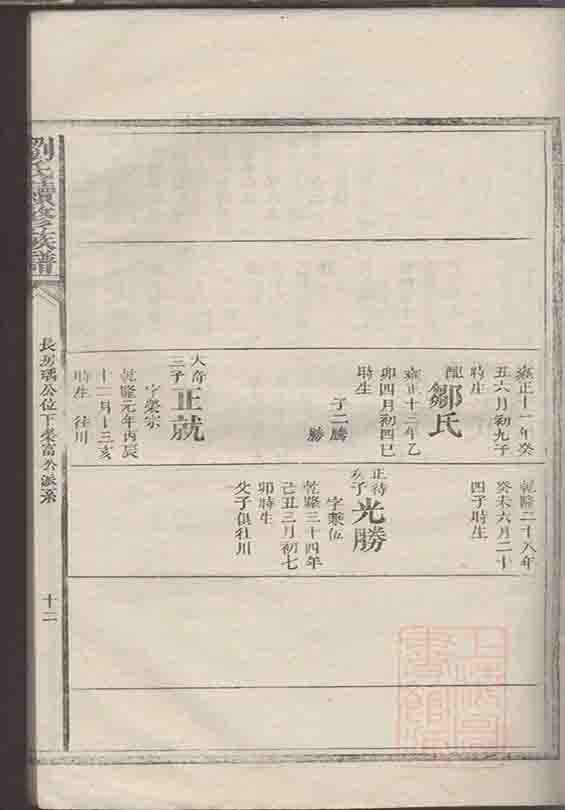 雍正十一年癸
丑六月初九子
時生
配
鄒氏
雍正十三年乙
卯四月初四巳
時生
子二騰
勝
大奇
三子
正就
字榮宗
乾隆元年丙辰
十一月十三亥
時生 往川
乾隆二十八年
癸未六月二十
四子時生
正待
次子
光勝
字繫伍
乾隆三十四年
己丑三月初七
卯時生
父子俱往川
劉氏續修族譜
長房瑀公位下榮富公派系
十二
上海圖
書館藏